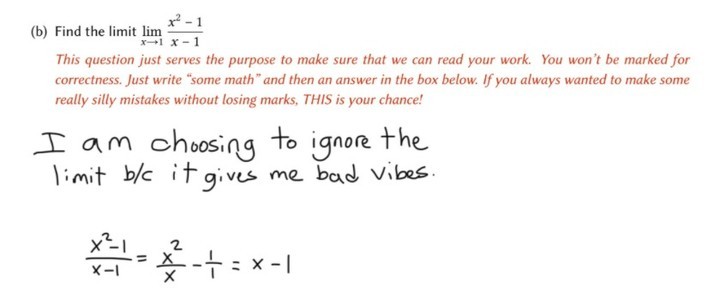 (b) Find the limit lim x→1 x² − 1 / x − 1
This question just serves the purpose to make sure that we can read your work. You won't be marked for
correctness. Just write "some math" and then an answer in the box below. If you always wanted to make some
really silly mistakes without losing marks, THIS is your chance!
I am choosing to ignore the
limit b/c it gives me bad vibes.
x²-1 / x-1 = x² / x - 1/1 = x - 1